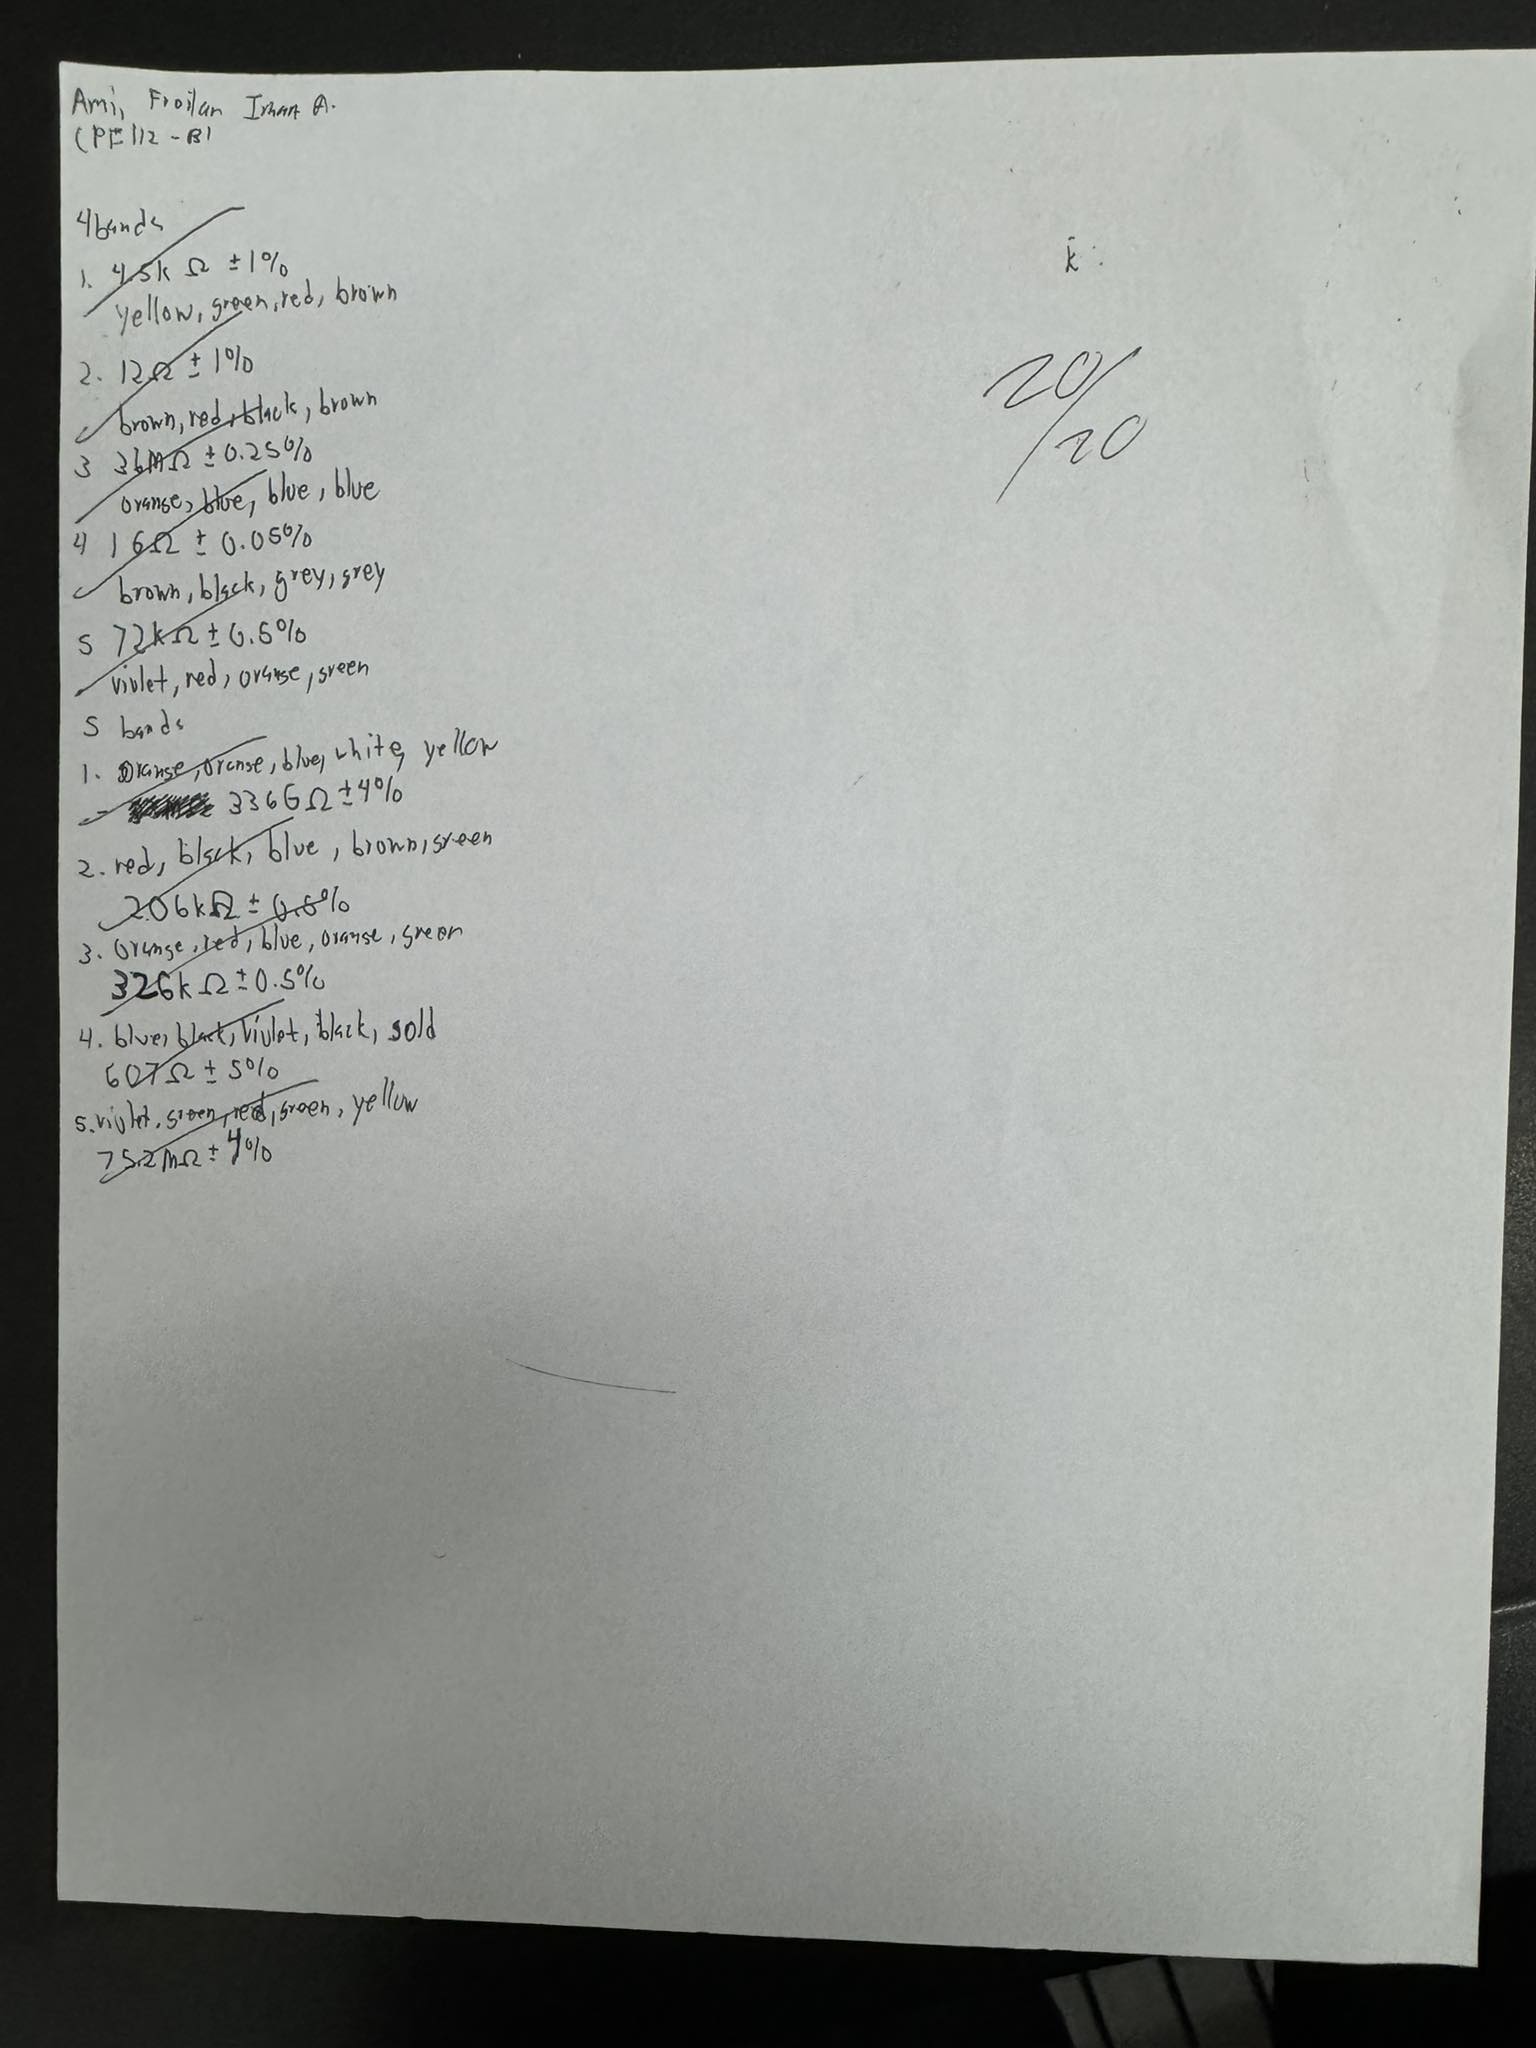 Ami, Froilan Iman A.
CPE112-B1
4bands
1. 4.5k Ω ±1%
yellow, green, red, brown
2. 12Ω ±1%
brown, red, black, brown
3 36MΩ ±0.25%
orange, blue, blue, blue
4 1GΩ ± 0.05%
brown, black, grey, grey
5 72kΩ ±0.5%
violet, red, orange, green
5 bands
1. orange, orange, blue, white, yellow
336GΩ ±4%
2. red, black, blue, brown, green
2.06kΩ ± 0.5%
3. orange, red, blue, orange, green
326kΩ ±0.5%
4. blue, black, violet, black, gold
607Ω ± 5%
5. violet, green, red, green, yellow
75.2MΩ ± 4%
k:
20/20